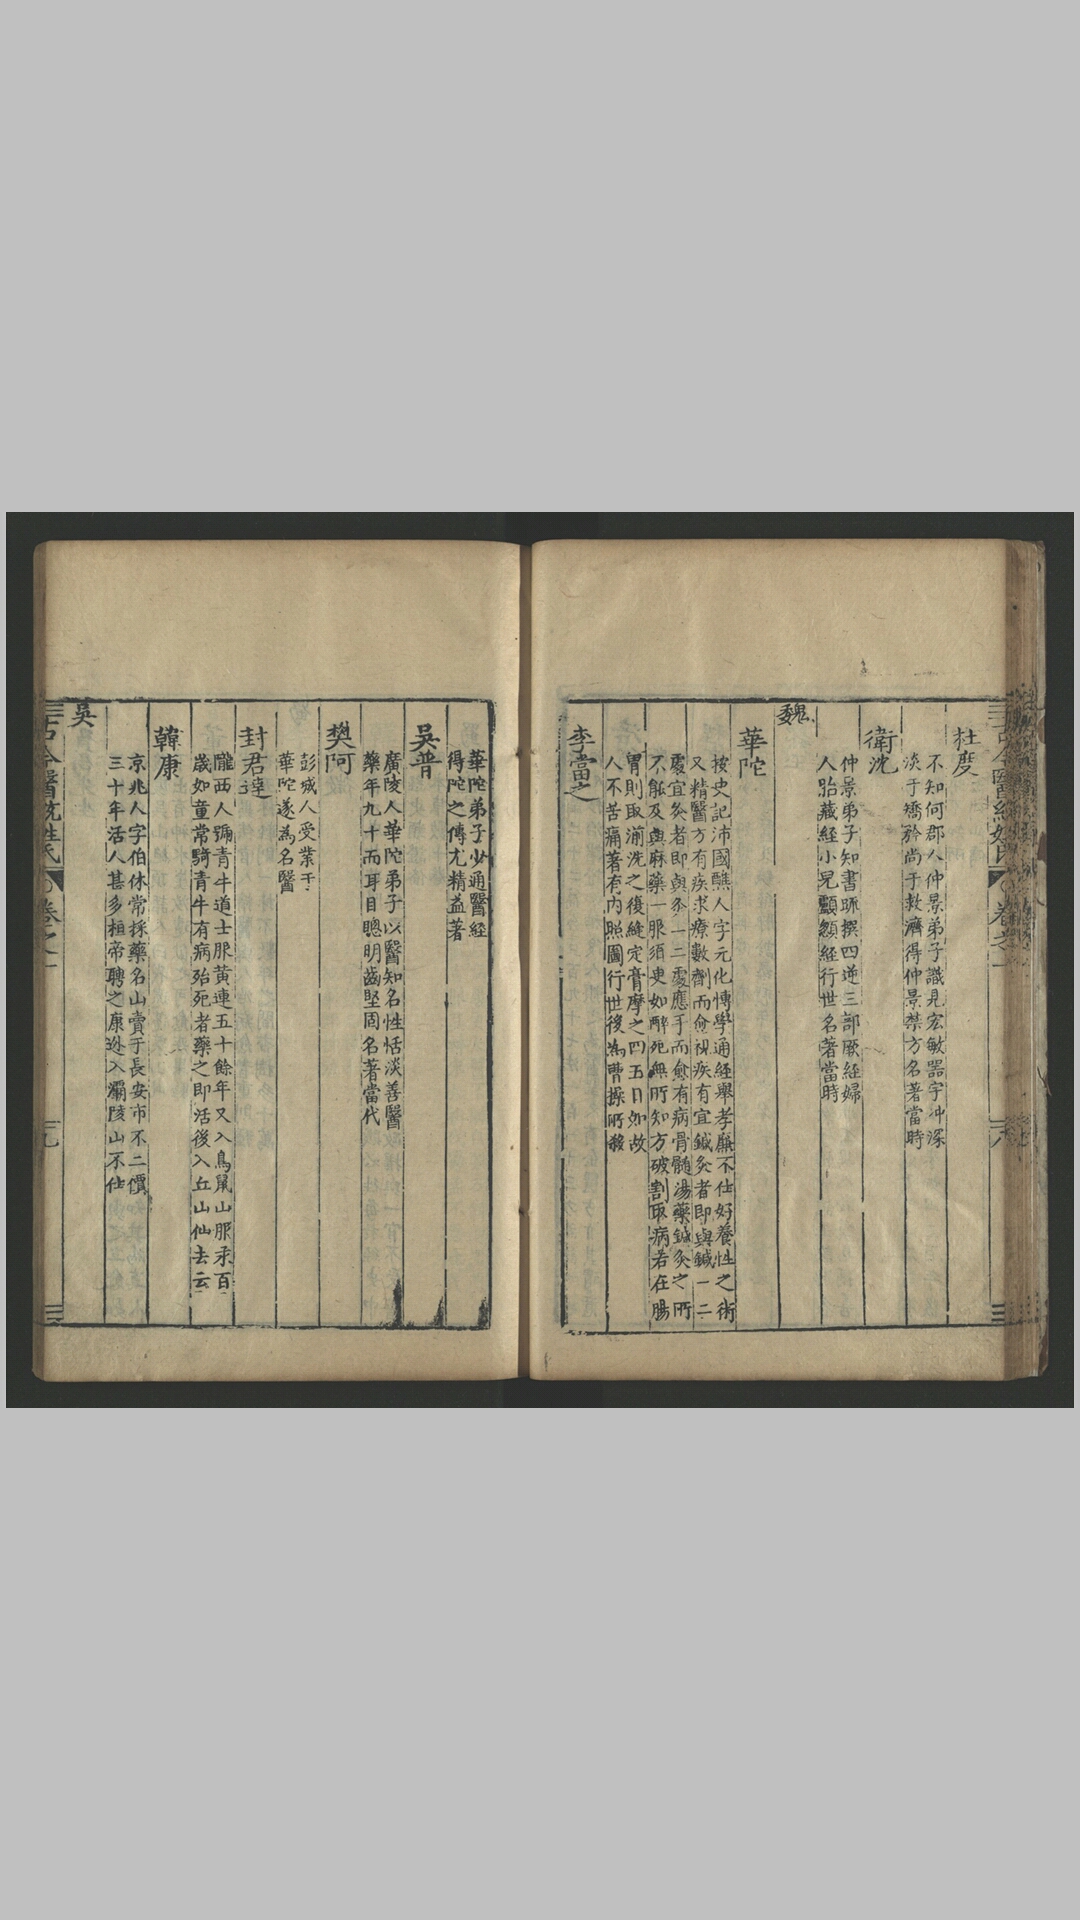 杜度
不知何郡人仲景弟子識見宏敏器宇冲深
淡于矯矜尚于救濟得仲景禁方名著當時
衛沈
仲景弟子知書脈撰四逆三部厥經婦
人胎藏經小兒顱顖經行世名著當時
魏
華陀
按史記沛國譙人字元化愽學通經舉孝廉不仕好養性之術
又精醫方有疾求療數劑而愈視疾有宜鍼灸者即與鍼一二
處宜灸者即與灸一二處應手而愈有病骨髓湯藥鍼灸之所
不能及與麻藥一服須臾如醉死無所知方破割取病若在腸
胃則取湔洗之後縫定膏摩之四五日如故
人不苦痛著有內照圖行世後為曹操所殺
李當之
華陀弟子少通醫經
得陀之傳尤精益著
吳普
廣陵人華陀弟子以醫知名性恬淡善醫
藥年九十而耳目聰明齒堅固名著當代
樊阿
彭城人受業于
華陀遂為名醫
封君達
隴西人號青牛道士服黃連五十餘年又入鳥鼠山服汞百
歲如童常騎青牛有病殆死者藥之即活後入丘山仙去云
韓康
京兆人字伯休常採藥名山賣于長安市不二價
三十年活人甚多桓帝聘之康逃入灞陵山不仕
吳
古今醫統姓氏 卷之一 九